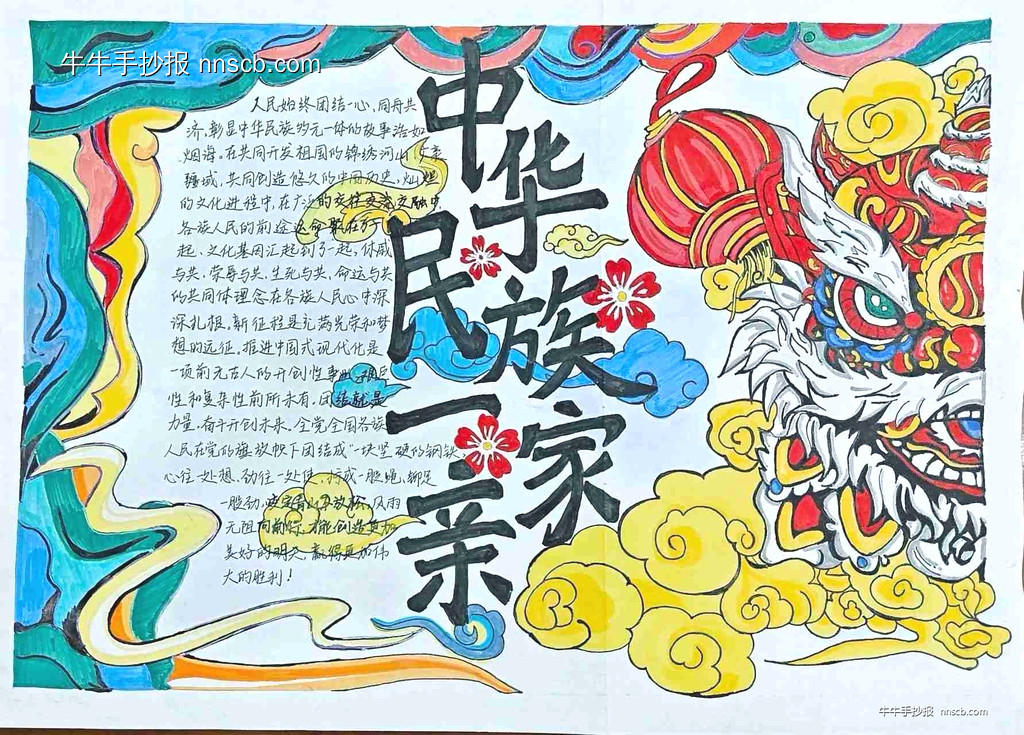 牛牛手抄报 nnscb.com
中华
民族
一家
亲
人民始终团结一心,同舟共
济,彰显中华民族多元一体的故事浩如
烟海。在共同开发祖国的锦绣河山、广袤
疆域,共同创造悠久的中国历史、灿烂
的文化进程中,在广泛的交往交流交融中,
各族人民的前途运命聚在了一
起,文化基因汇起到了一起,休戚
与共,荣辱与共,生死与共,命运与共
的共同体理念在各族人民心中深
深扎根。新征程是充满光荣和梦
想的远征。推进中国式现代化是
一项前无古人的开创性事业,艰巨
性和复杂性前所未有。团结就是
力量,奋斗开创未来。全党全国各族
人民在党的旗帜下团结成"一块坚硬的钢铁",
心往一处想、劲往一处使,拧成一股绳,铆足
一股劲,咬定青山不放松,风雨
无阻向前行,才能创造更加
美好的明天,赢得更加伟
大的胜利!
牛牛手抄报 nnscb.com